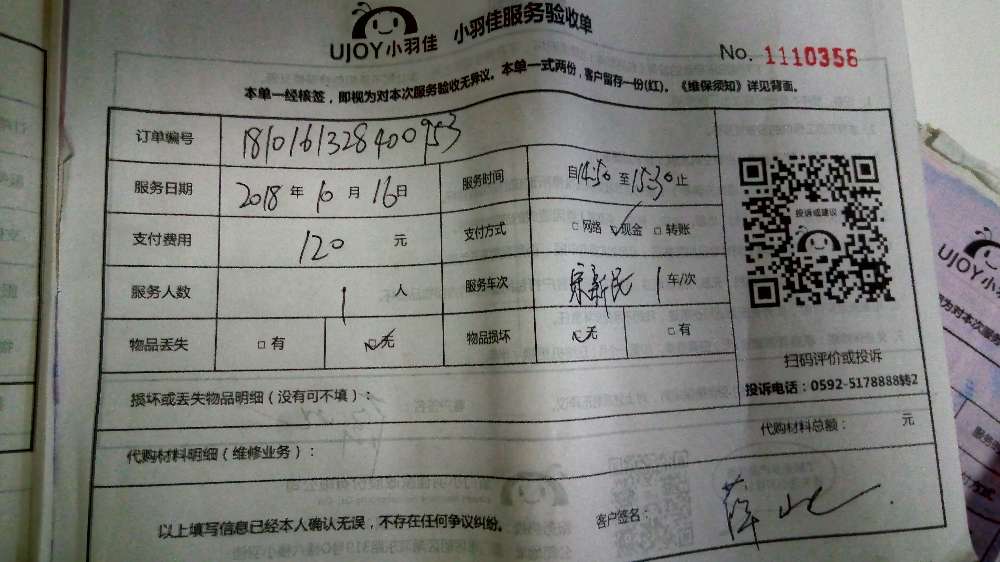 UJOY小羽佳 小羽佳服务验收单
No. 1110356
本单一经核签，即视为对本次服务验收无异议。本单一式两份，客户留存一份(红)。《维保须知》详见背面。
订单编号 1810161328400953
服务日期 2018 年 10 月 16 日 服务时间 自14:50 至 15:30 止
支付费用 120 元 支付方式 □网络 ☑现金 □转账
服务人数 1 人 服务车次 宋新民 1 车/次
物品丢失 □有 ☑无 物品损坏 ☑无 □有
投诉或建议
扫码评价或投诉
投诉电话：0592-5178888转2
损坏或丢失物品明细（没有可不填）：
代购材料明细（维修业务）： 代购材料总额： 元
以上填写信息已经本人确认无误，不存在任何争议纠纷。 客户签名： 薛
UJOY小羽